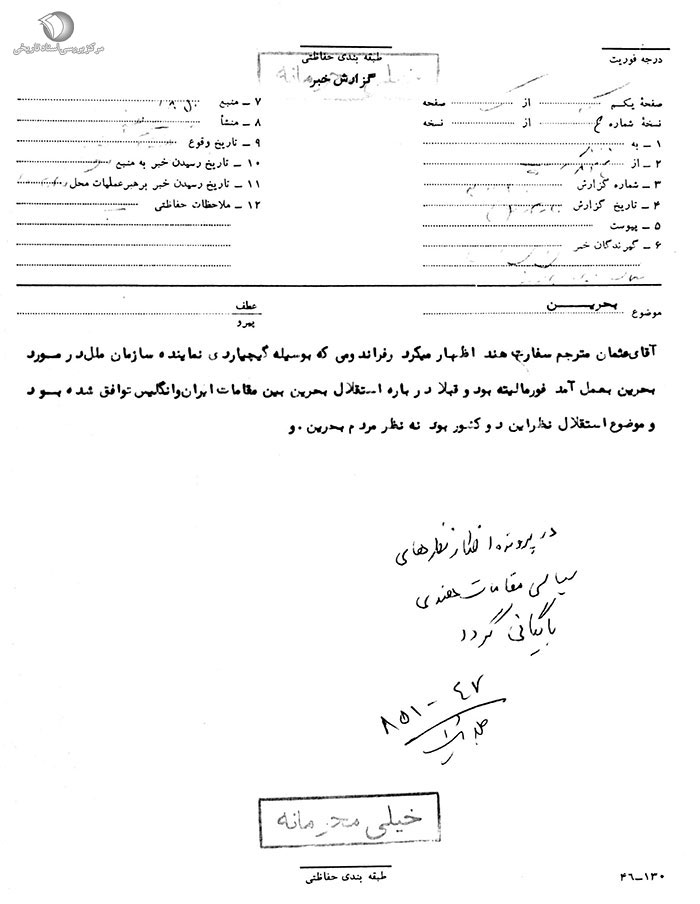 مرکز بررسی اسناد تاریخی
طبقه بندی حفاظتی
خیلی محرمانه
درجه فوریت
گزارش خبر
صفحهٔ یکم از صفحه
نسخهٔ شماره از نسخه
۱ ـ به
۲ ـ از
۳ ـ شماره گزارش
۴ ـ تاریخ گزارش
۵ ـ پیوست
۶ ـ گیرندگان خبر
۷ ـ منبع
۸ ـ منشأ
۹ ـ تاریخ وقوع
۱۰ ـ تاریخ رسیدن خبر به منبع
۱۱ ـ تاریخ رسیدن خبر برهبرعملیات محل
۱۲ ـ ملاحظات حفاظتی
موضوع بحریــن
عطف
پیرو
آقای عثمان مترجم سفارت هند اظهار میکرد رفراندومی که بوسیله گیچیاردی نماینده سازمان ملل در مورد
بحرین بعمل آمد فورمالیته بود و قبلا درباره استقلال بحرین بین مقامات ایران وانگلیس توافق شده بود
و موضوع استقلال نظر این دو کشور بود نه نظر مردم بحرین . و
در پرونده اظهار نظرهای
سیاسی مقامات هندی
بایگانی گردد
۸۵۱ - ۴۷
خیلی محرمانه
طبقه بندی حفاظتی
۴۶-۱۳۰